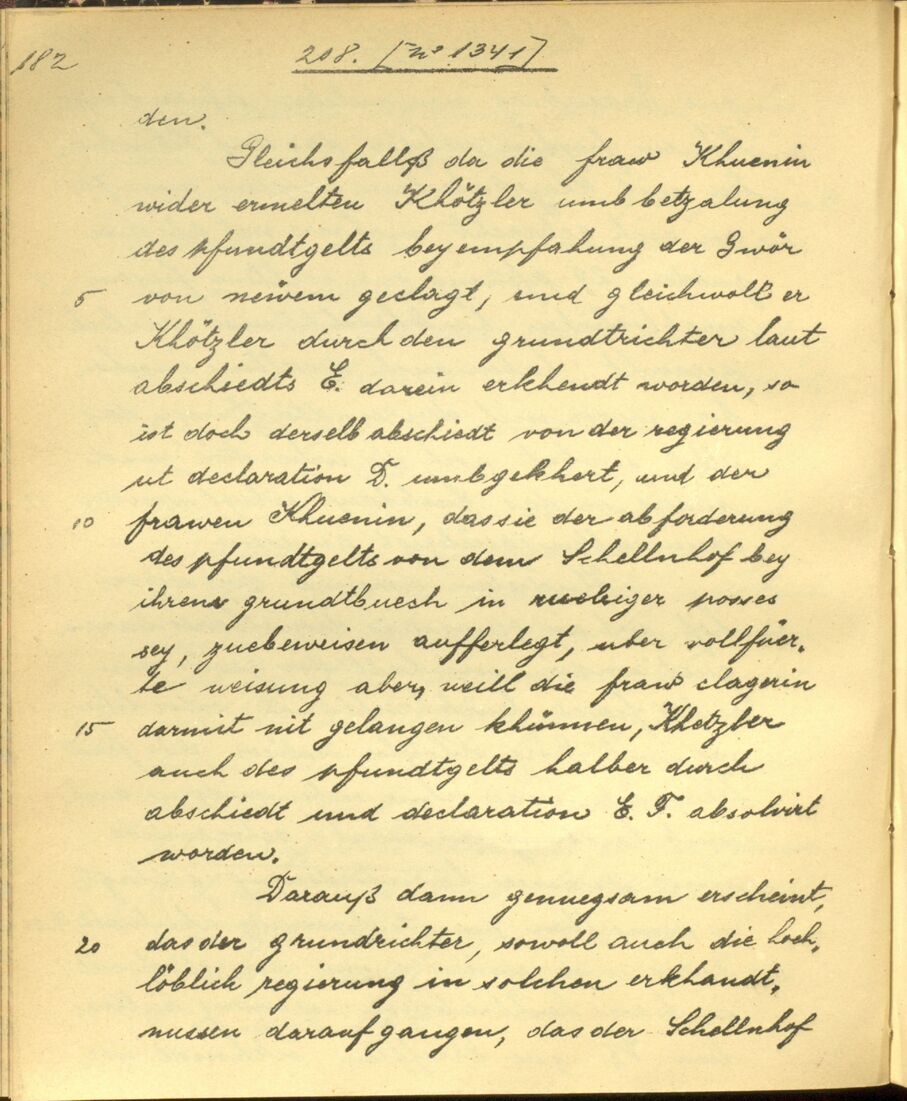 182
208. [nº 1341]
den.
Gleichsfallß da die fraw Khuenin
wider ermelten Khötzler umb betzalung
des pfundtgelts bey empfahung der Gwör
5 von neẅem geclagt, und gleichwoll er
Khötzler durch den grundtrichter laut
abschiedts E. darein erkhendt worden, so
ist doch derselb abschiedt von der regierung
ut declaration D. umbgekhert, und der
10 frawen Khuenin, das sie der abforderung
des pfundtgelts von dem Schellnhof bey
ihrem grundtbuech in ruebiger posses
sey, zuebeweisen aufferlegt, uber vollfüer„
te weisung aber, weill die fraw clagerin
15 darmit nit gelangen khünnen, Khetzler
auch des pfundtgelts halber durch
abschiedt und declaration E. F. absolvirt
worden.
Darauß dann genuegsam erscheint,
20 das der grundrichter, sowoll auch die hoch„
löblich regierung in solchen erkhandt„
nussen darauf gangen, das der Schellnhof